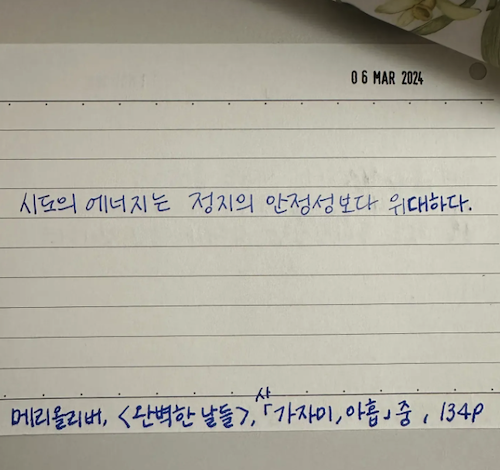 06 MAR 2024
시도의 에너지는 정지의 안정성보다 위대하다.
사
메리올리버, <완벽한 날들>, 「가자미, 아홉」 중, 134P